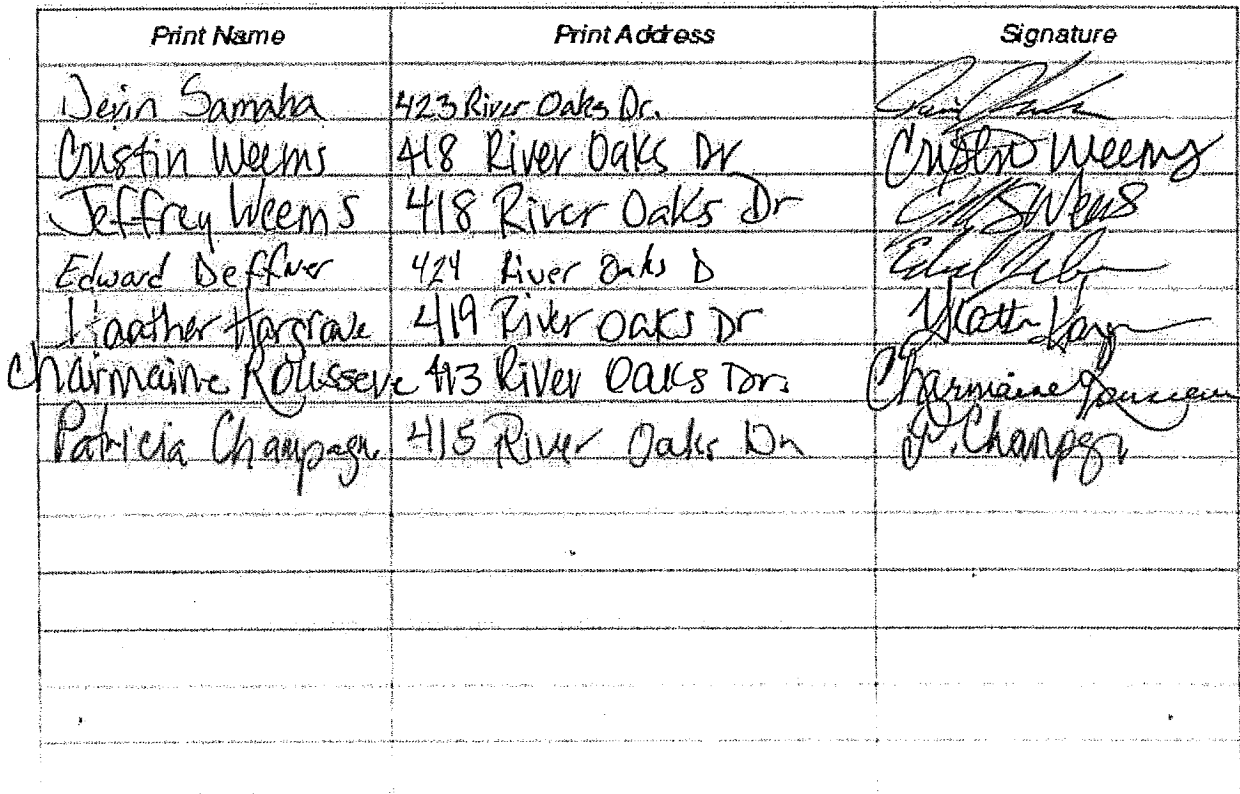 Print Name Print Address Signature
Devin Samaha 423 River Oaks Dr.
Cristin Weems 418 River Oaks Dr Cristin Weems
Jeffrey Weems 418 River Oaks Dr Weems
Edward Deffner 424 River Oaks D
Heather Hargrave 419 River Oaks Dr
Charmaine Rousseve 413 River Oaks Dr. Charmaine Rousseve
Patricia Champagn 415 River Oaks Dr P. Champagn